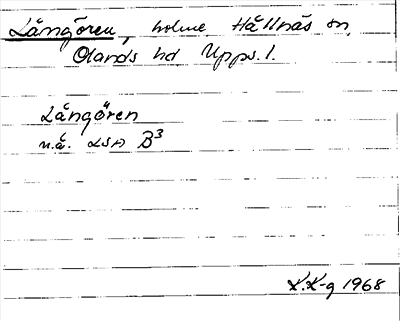 Långören, holme Hållnäs sn,
Olands hd Upps.l.
Långören
u.å. LSA B³
K.K-g 1968